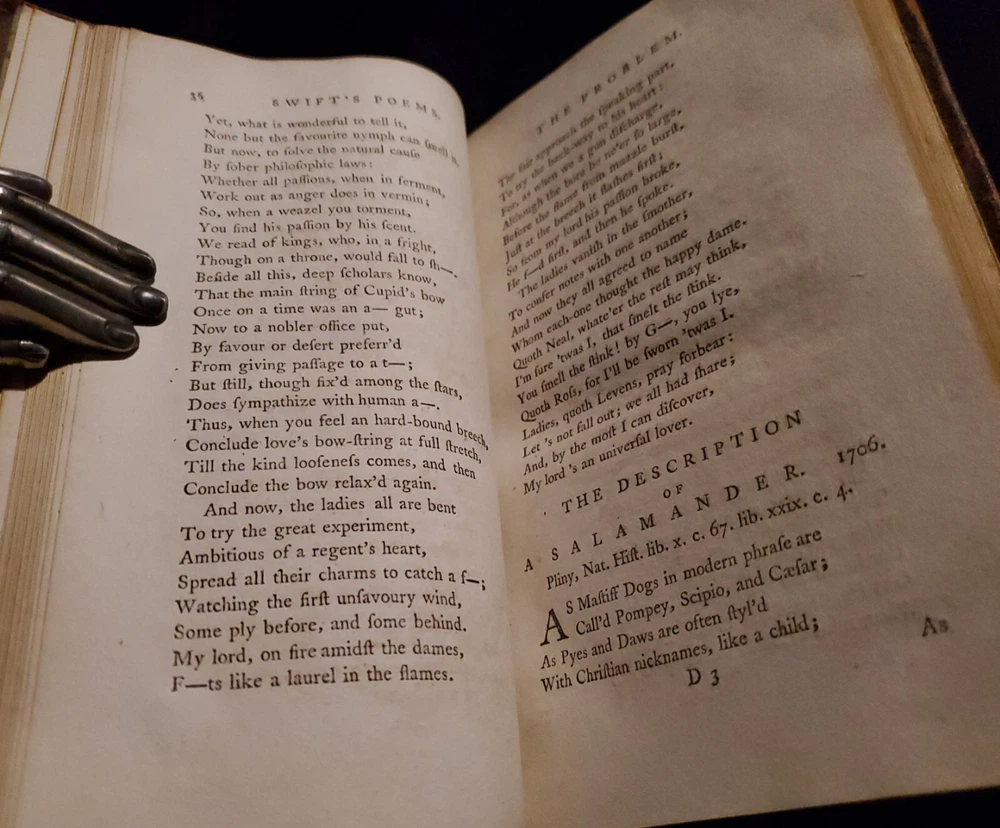 36
SWIFT'S POEMS.
Yet, what is wonderful to tell it,
None but the favourite nymph can ſmell it.
But now, to ſolve the natural cauſe
By ſober philoſophic laws:
Whether all paſſions, when in ferment,
Work out as anger does in vermin;
So, when a weazel you torment,
You find his paſſion by his ſcent.
We read of kings, who, in a fright,
Though on a throne, would fall to ſh—.
Beſide all this, deep ſcholars know,
That the main ſtring of Cupid's bow
Once on a time was an a— gut;
Now to a nobler office put,
By favour or deſert preferr'd
From giving paſſage to a t—;
But ſtill, though fix'd among the ſtars,
Does ſympathize with human a—.
'Thus, when you feel an hard-bound breech,
Conclude love's bow-ſtring at full ſtretch,
Till the kind looſeneſs comes, and then
Conclude the bow relax'd again.
And now, the ladies all are bent
To try the great experiment,
Ambitious of a regent's heart,
Spread all their charms to catch a f—;
Watching the firſt unſavoury wind,
Some ply before, and ſome behind.
My lord, on fire amidſt the dames,
F—ts like a laurel in the flames.
THE PROBLEM.
The fair approach the ſpeaking part,
To try the back-way to his heart:
For, as when we a gun diſcharge,
Although the bore be ne'er ſo large,
Before the flame from muzzle burſt,
Juſt at the breech it flaſhes firſt;
So from my lord his paſſion broke,
He f—d firſt, and then he ſpoke.
The ladies vaniſh in the ſmother,
To confer notes with one another;
And now they all agreed to name
Whom each-one thought the happy dame.
Quoth Neal, whate'er the reſt may think,
I'm ſure 'twas I, that ſmelt the ſtink.
You ſmell the ſtink! by G—, you lye,
Quoth Roſs, for I'll be ſworn 'twas I.
Ladies, quoth Levens, pray forbear:
Let 's not fall out; we all had ſhare;
And, by the moſt I can diſcover,
My lord 's an univerſal lover.
THE DESCRIPTION
OF
A SALAMANDER. 1706.
Pliny, Nat. Hiſt. lib. x. c. 67. lib. xxix. c. 4.
AS Maſtiff Dogs in modern phraſe are
Call'd Pompey, Scipio, and Cæſar;
As Pyes and Daws are often ſtyl'd
With Chriſtian nicknames, like a child;
D 3
As